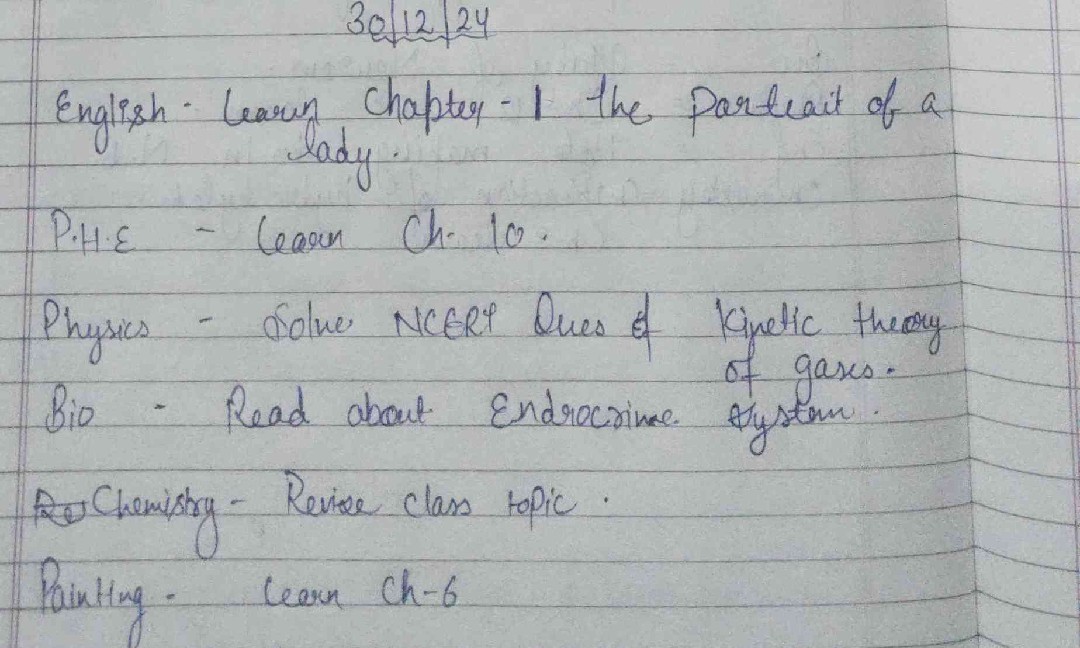 30/12/24
English - Learn Chapter - 1 the Partrait of a
lady.
P.H.E - Learn Ch. 10.
Physics - Solve NCERT Ques of Kinetic theory
of gases.
Bio - Read about Endrocrine System.
Chemistry - Revise class topic.
Painting - Learn Ch-6